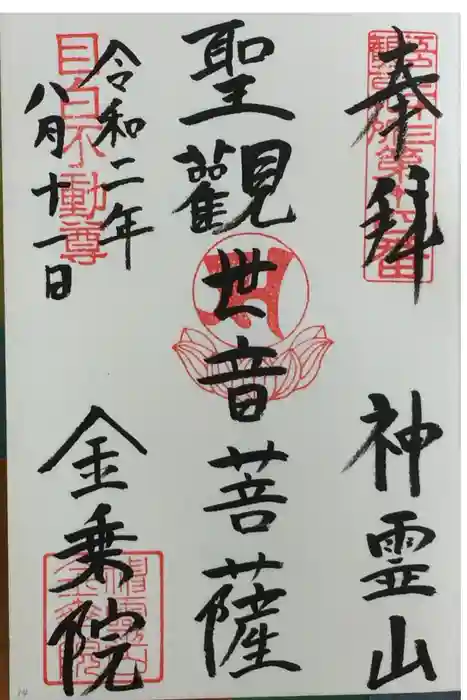 奉拝
神霊山
聖観世音菩薩
令和二年
八月十一日
金乗院
目白不動尊